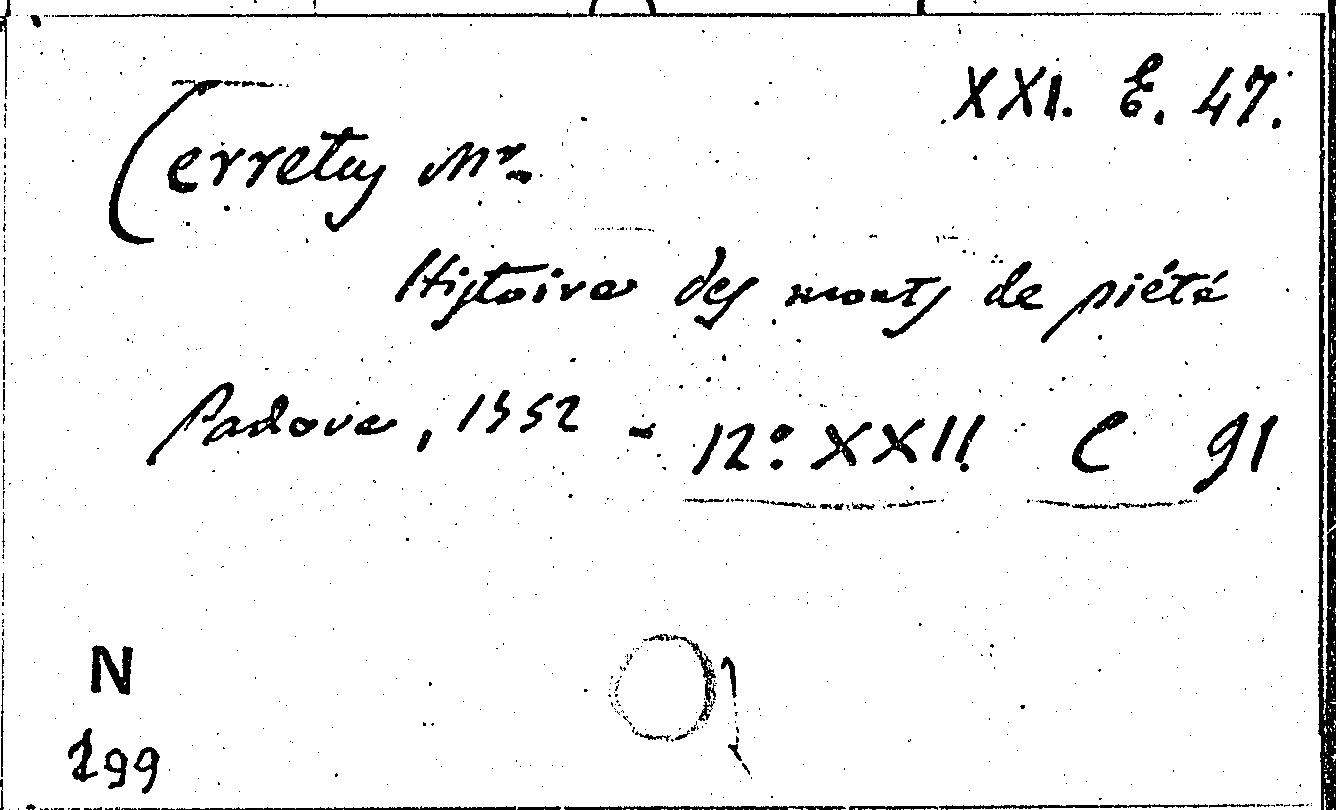 XXI. E. 47.
Cerretus Mr.
Histoire des monts de piété
Padove, 1552 - 12º XXII C 91
N
199